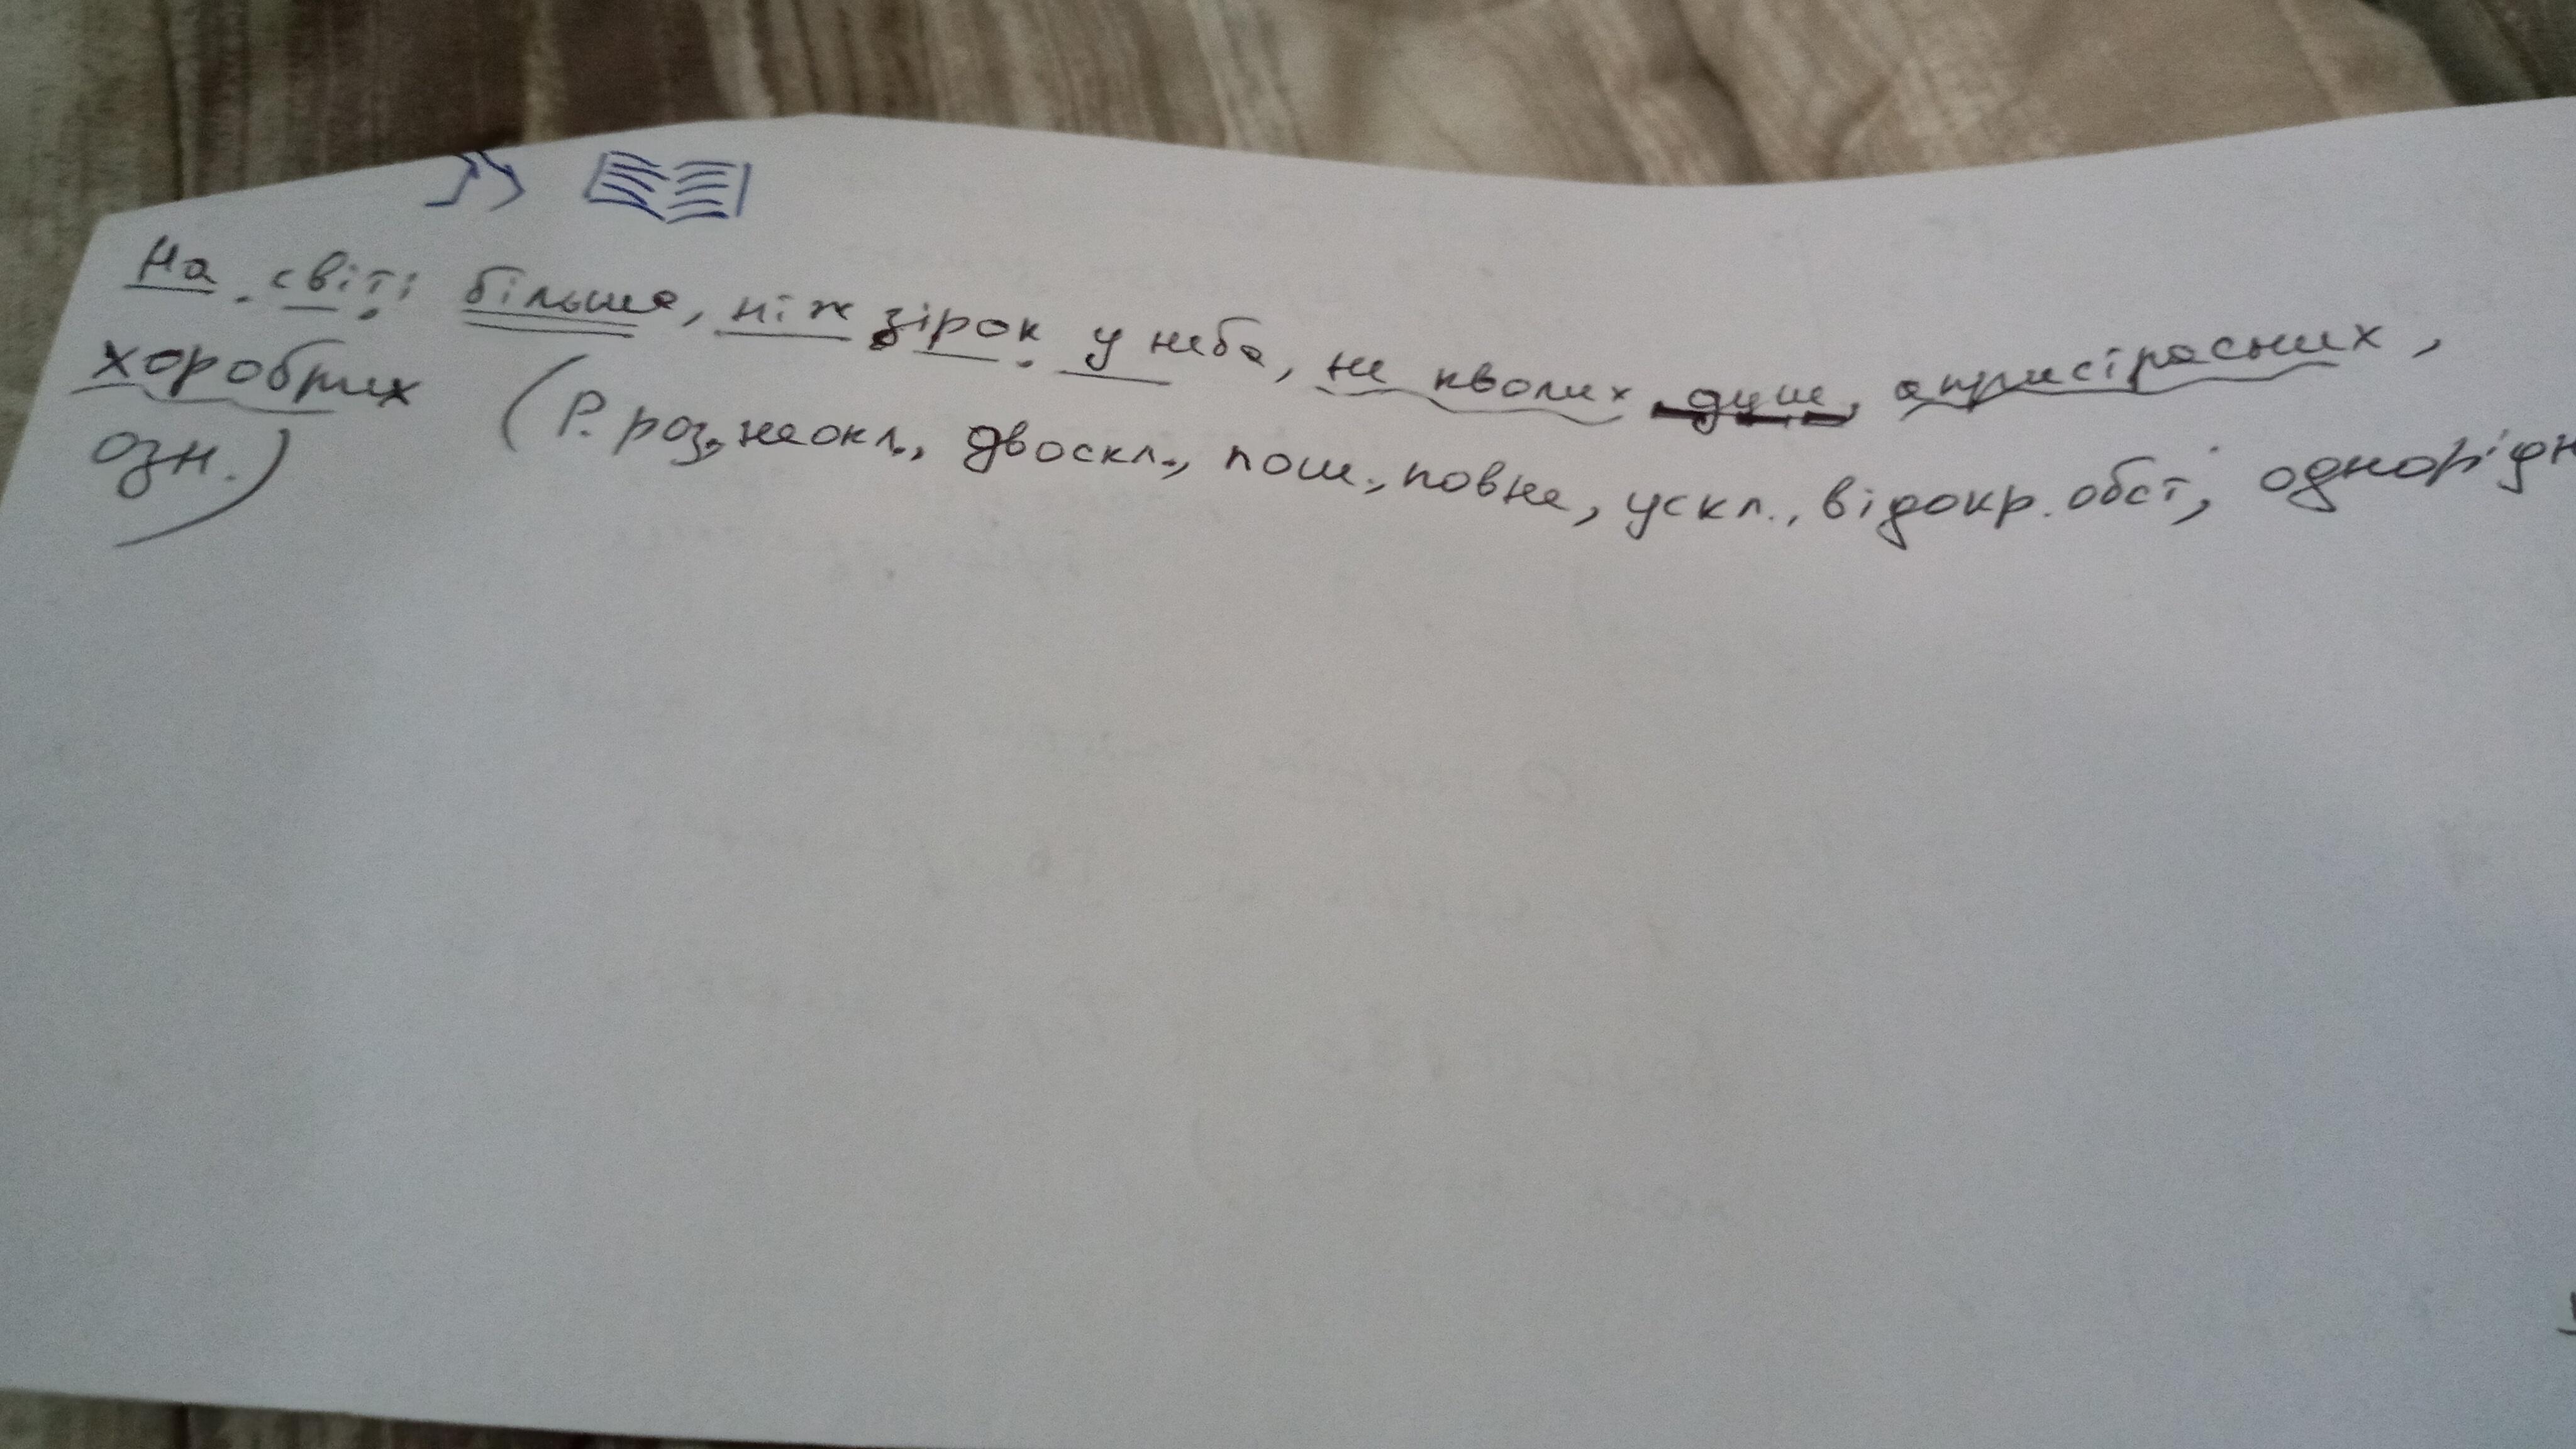 На світі більше, ніж зірок у неба, не кволих душ, а пристрасних,
хоробрих (Р. роз, неокл., двоскл., пош., повне, ускл., відокр. обст, однорідн
озн.)